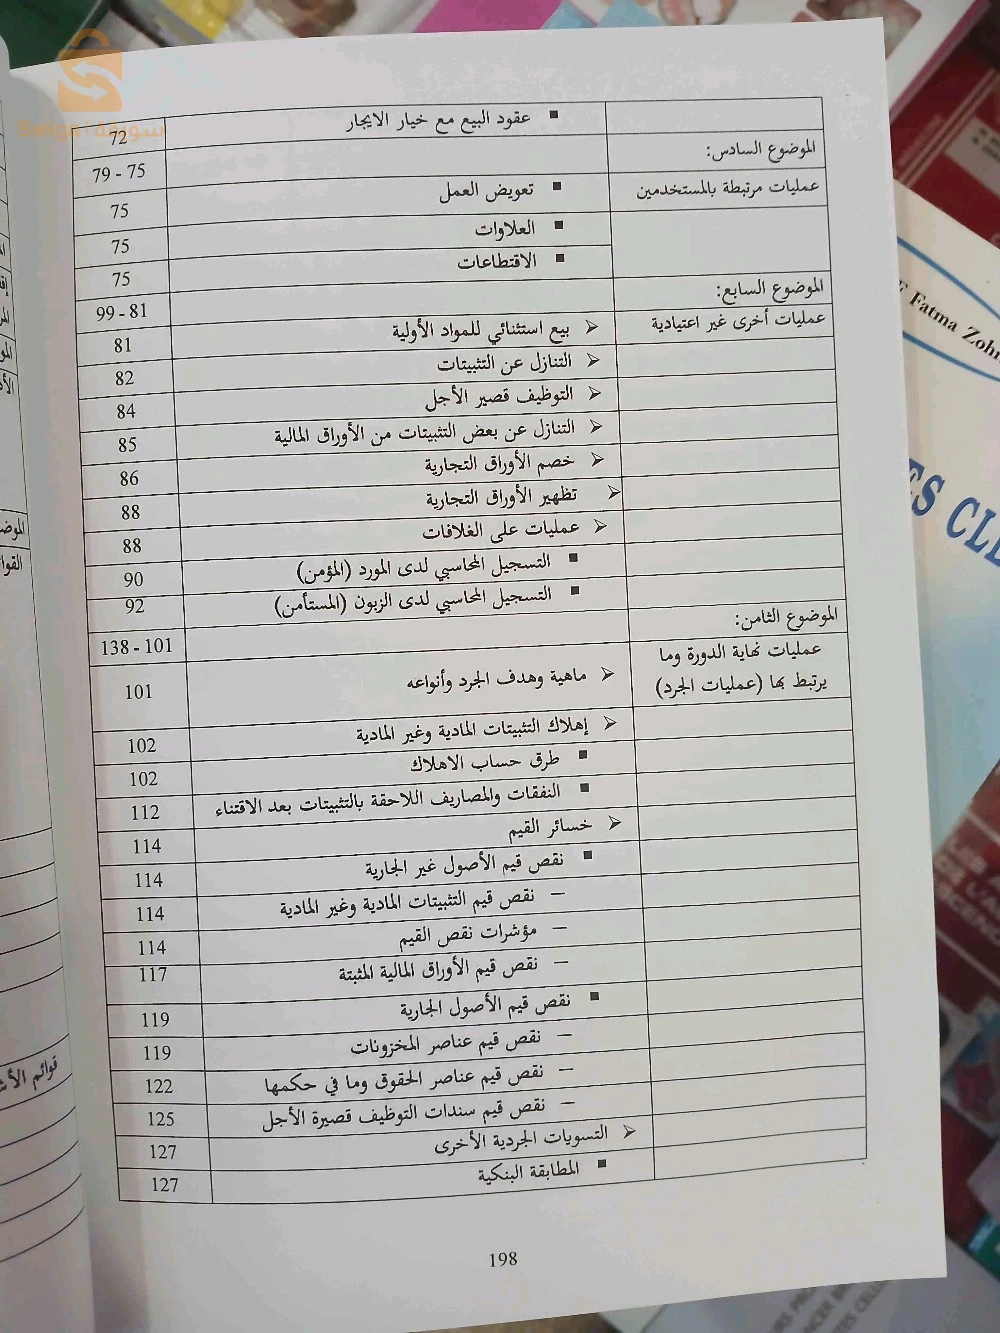 عقود البيع مع خيار الايجار 72
الموضوع السادس: 75 - 79
عمليات مرتبطة بالمستخدمين ▪ تعويض العمل 75
▪ العلاوات 75
▪ الاقتطاعات 75
الموضوع السابع: 81 - 99
عمليات أخرى غير اعتيادية ➢ بيع استثنائي للمواد الأولية 81
➢ التنازل عن التثبيتات 82
➢ التوظيف قصير الأجل 84
➢ التنازل عن بعض التثبيتات من الأوراق المالية 85
➢ خصم الأوراق التجارية 86
➢ تظهير الأوراق التجارية 88
➢ عمليات على الغلافات 88
▪ التسجيل المحاسبي لدى المورد (المؤمن) 90
▪ التسجيل المحاسبي لدى الزبون (المستأمن) 92
الموضوع الثامن: 101 - 138
عمليات نهاية الدورة وما
يرتبط بها (عمليات الجرد) ➢ ماهية وهدف الجرد وأنواعه 101
➢ إهلاك التثبيتات المادية وغير المادية 102
▪ طرق حساب الاهلاك 102
▪ النفقات والمصاريف اللاحقة بالتثبيتات بعد الاقتناء 112
➢ خسائر القيم 114
▪ نقص قيم الأصول غير الجارية 114
– نقص قيم التثبيتات المادية وغير المادية 114
– مؤشرات نقص القيم 114
– نقص قيم الأوراق المالية المثبتة 117
▪ نقص قيم الأصول الجارية 119
– نقص قيم عناصر المخزونات 119
– نقص قيم عناصر الحقوق وما في حكمها 122
– نقص قيم سندات التوظيف قصيرة الأجل 125
➢ التسويات الجردية الأخرى 127
▪ المطابقة البنكية 127
198
قوائم
Fatma
ES